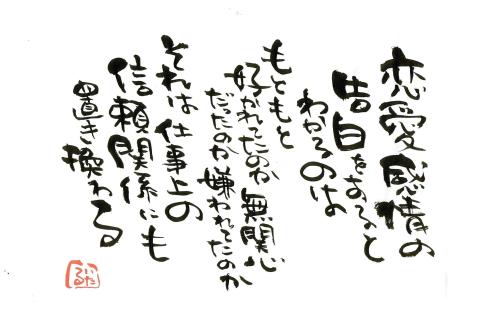 恋愛感情の
告白をあると
わかるのは
もともと
好かれてたのか 無関心
だったのか 嫌われてたのか
それは 仕事上の
信頼関係にも
置き換わる